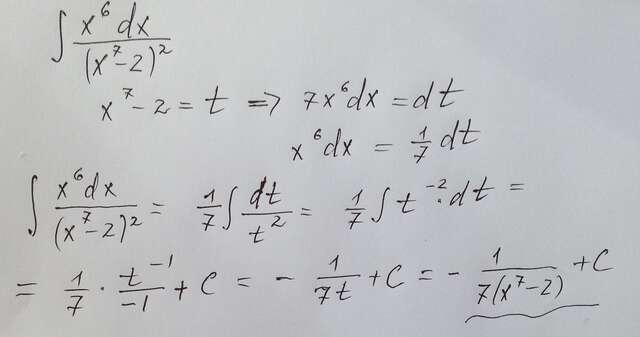 ∫ x⁶dx / (x⁷-2)²
x⁷-2 = t ⇒ 7x⁶dx = dt
x⁶dx = 1/7 dt
∫ x⁶dx / (x⁷-2)² = 1/7 ∫ dt / t² = 1/7 ∫ t⁻²·dt =
= 1/7 · t⁻¹ / -1 + C = - 1 / 7t + C = - 1 / 7(x⁷-2) + C